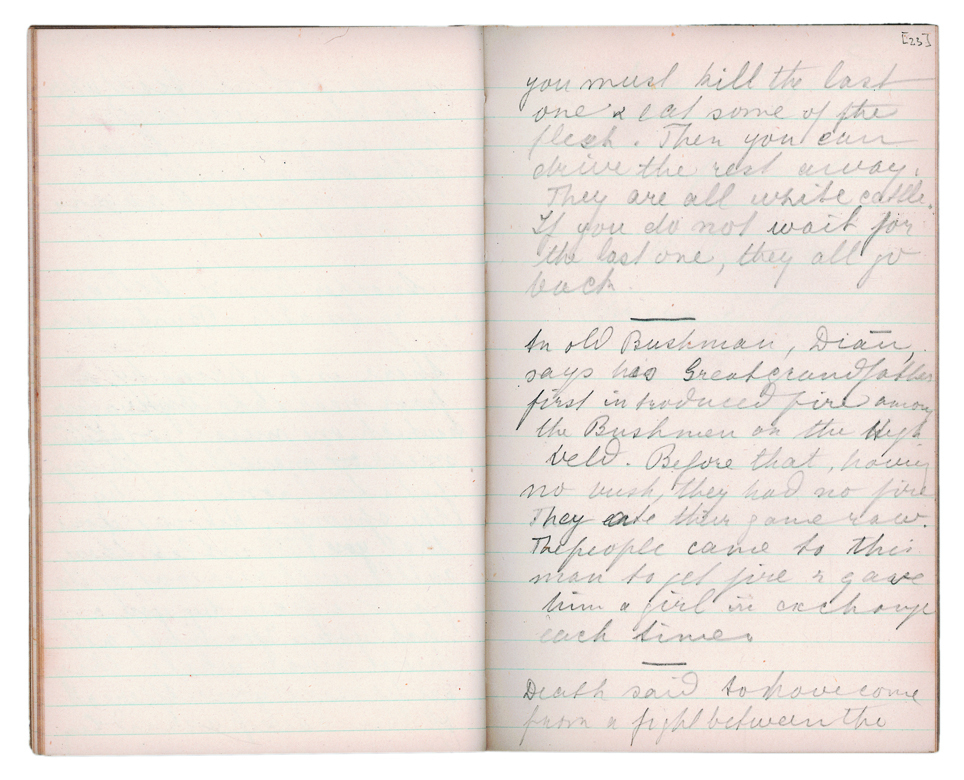 [23]
you must kill the last
one & eat some of the
flesh. Then you can
drive the rest away.
They are all white cattle.
If you do not wait for
the last one, they all go
back.
An old Bushman, Diãn,
says his Greatgrandfather
first introduced fire among
the Bushmen on the High
veld. Before that, having
no bush, they had no fire.
They ate their game raw.
The people came to this
man to get fire & gave
him a girl in exchange
each time.
Death said to have come
from a fight between the